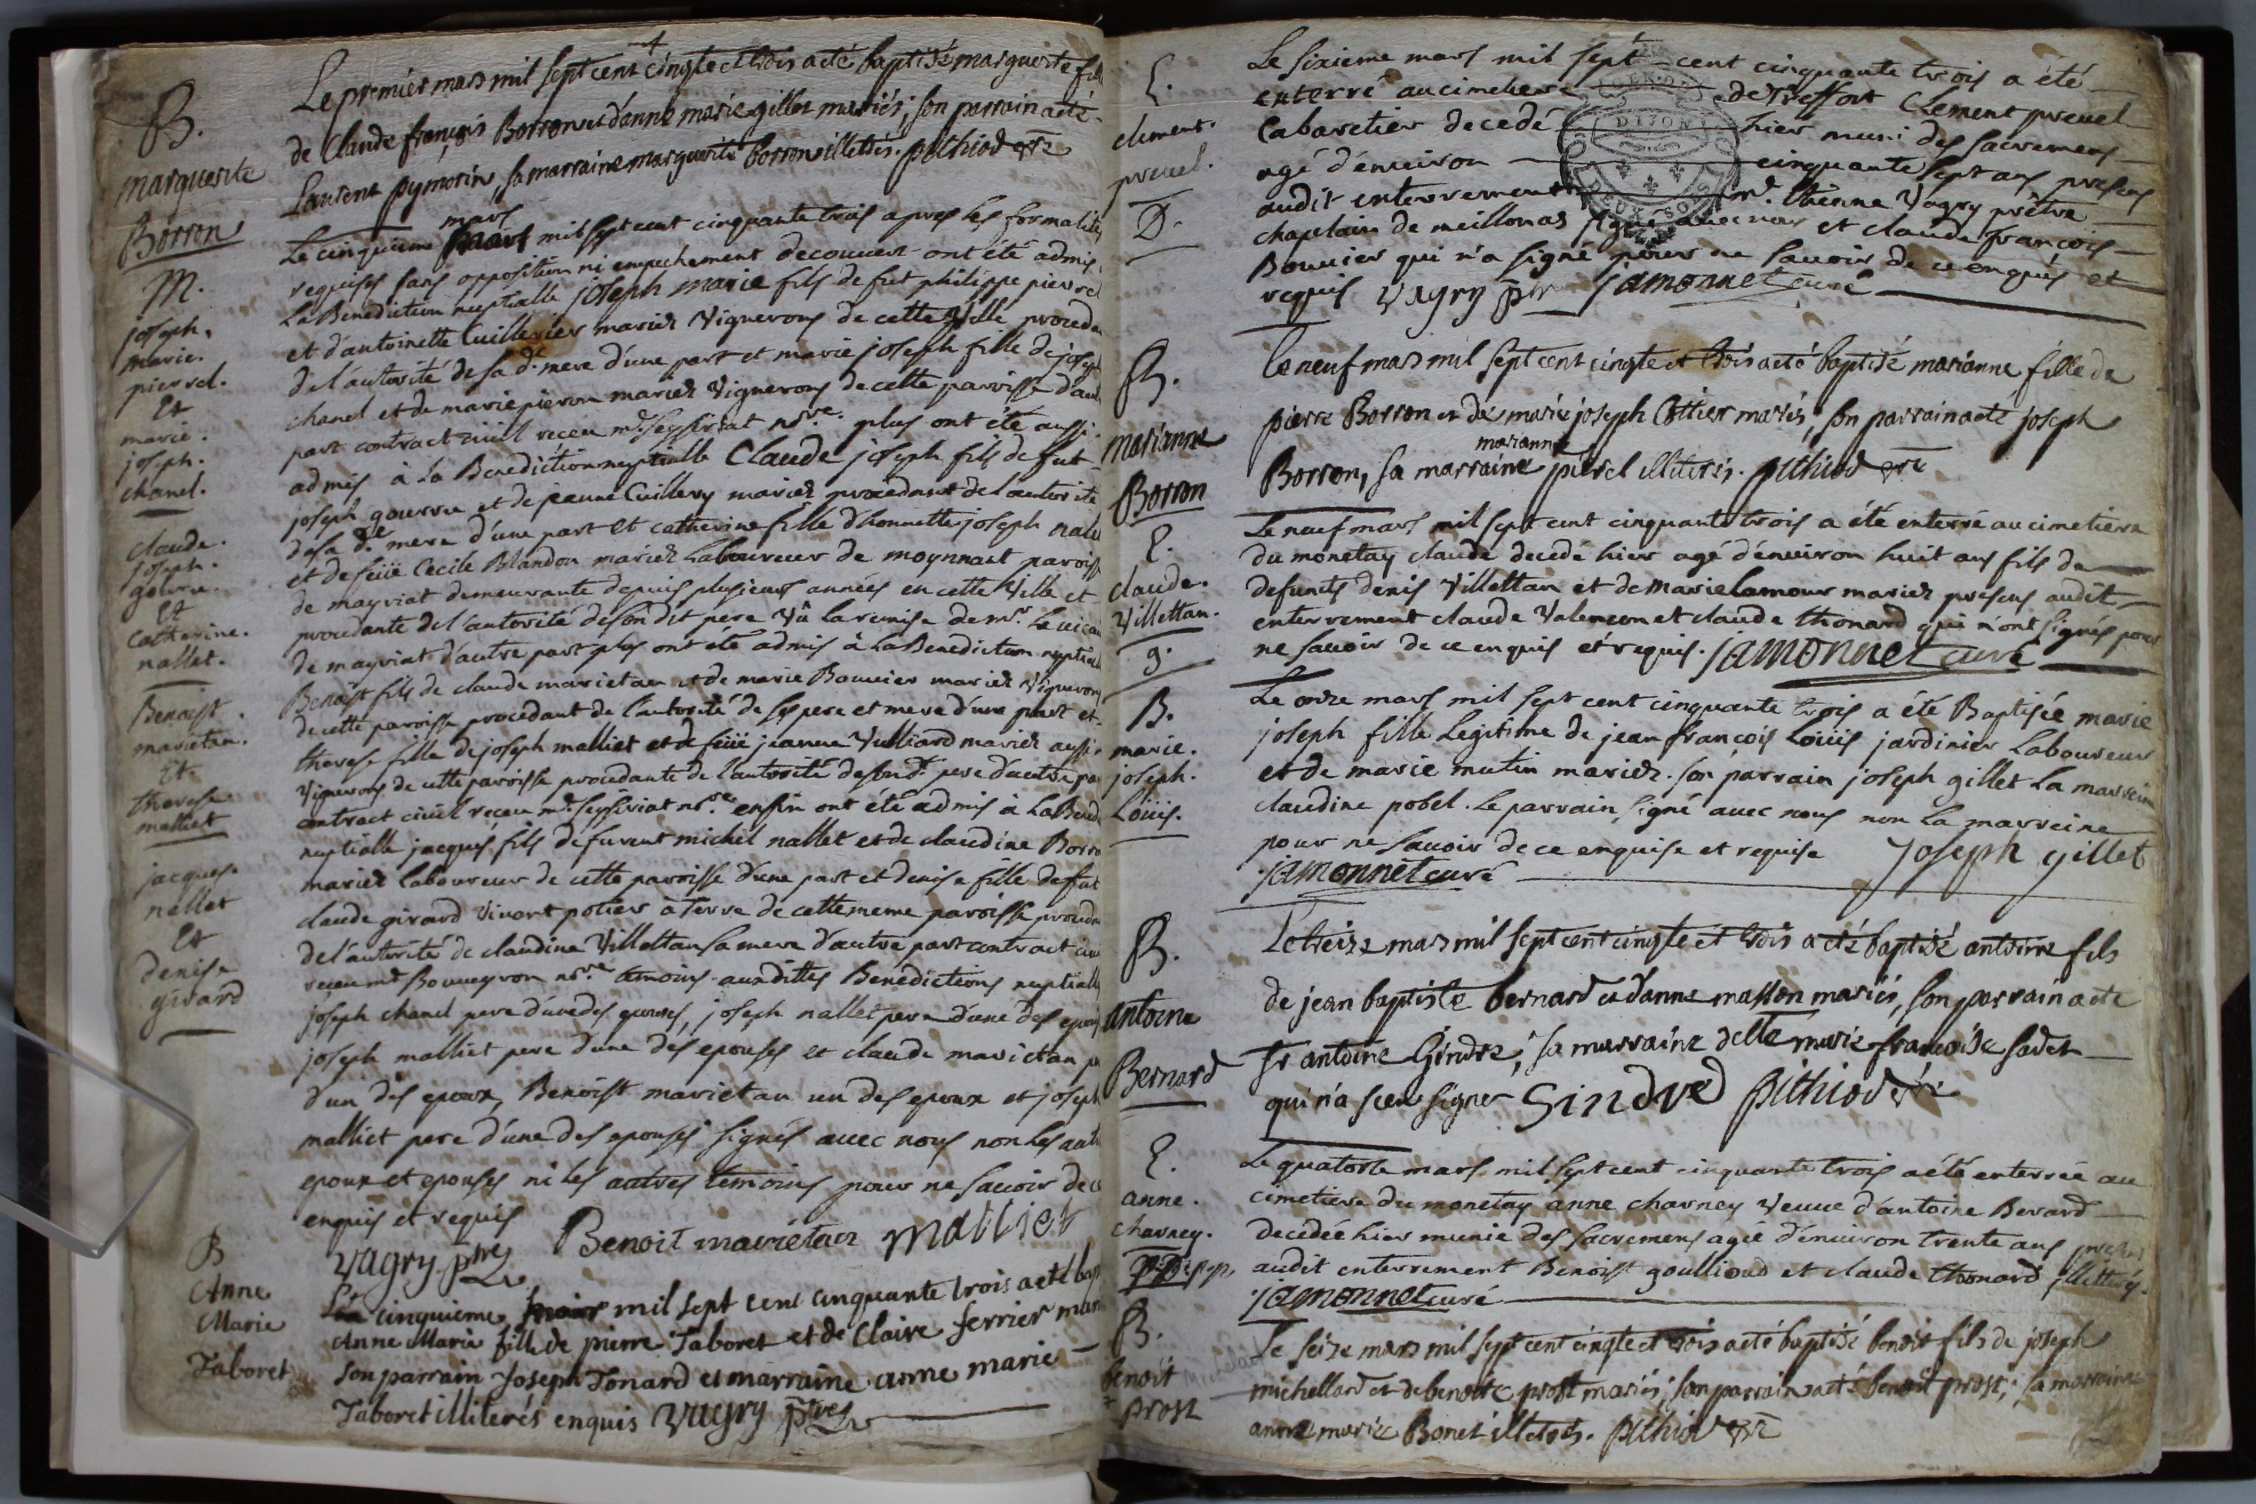 B.
marguerite
Borron
Le premier mars mil sept cent cinqte et trois a eté baptisé marguerite fille
de Claude françois Borron et d'anne marie gillet mariés; son parrain a eté
Laurent pymorin, sa marraine marguerite borron illettrés. pithiod
M.
joseph.
marie.
pierrel.
Et
marie.
joseph.
chanel.
claude.
joseph.
gourru.
Et
Catherine.
nallet.
Benoist.
marietan.
Et
therese
malliet
jacques
nallet
Et
denise
girard
mars
Le cinquieme mil sept cent cinquante trois apres les formalités
requises sans opposition ni empechement decouvert ont été admis
La Benediction nuptialle joseph marie fils de fut philippe pierrel
et d'antoinette Cuillerier mariez Vignerons de cette Ville proceda
de l'autorité de sa de. mere d'une part et marie joseph fille de joseph
chanel et de marie pieron mariez Vignerons de cette parroisse d'aut
part contract civil receu mr. seyssiriat nore. plus ont été aussi
admis à La Benediction nuptialle Claude joseph fils de fut
joseph gourru et de jeanne Cuillery mariez procedant de l'autorité
de sa de mere d'une part et catherine fille d'honnette joseph nalle
et de feüe Cecile Blandon mariez Laboureur de moynnart paroiss
de mayriat demeurante depuis plusieurs années en cette Ville et
procedante de l'autorité de son dt pere Vû La remise de mr. Le vicai
de mayriat d'autre part plus ont été admis à La Benediction nuptial
Benoist fils de claude marietan et de marie Bouvier mariez Vignerons
de cette paroisse procedant de l'autorité de ses pere et mere d'une part et
therese fille de joseph malliet et de feüe jeanne Vulliard mariez aussi
Vignerons de cette paroisse procedante de l'autorité de son dt. pere d'autre pa
contract civil receu mr. seyssiriat nore enfin ont été admis à La Bened
nuptialle jacques fils de furent michel nallet et de claudine Borro
mariez Laboureur de cette paroisse d'une part et denise fille de fut
claude girard Vivant potier à Terre de cette meme paroisse proceda
de l'autorité de claudine Villettan sa mere d'autre part contract civi
receu mr Bouveyron nore temoins auxdittes Benedictions nuptiall
joseph chanel pere d'une des epouses, joseph nallet pere d'une des epous
joseph malliet pere d'une des epouses et claude marietan pe
d'un des epoux, Benoist marietan un des epoux et joseph
malliet pere d'une des epouses signés avec nous non Les autr
epoux et epouses ni Les autres temoins pour ne savoir de c
enquis et requis
Vagry ptre Benoit mariétan malliet
B
Anne
Marie
Taboret
Le cinquieme mil sept cent cinquante trois a eté bap
Anne Marie fille de pierre Taboret et de Claire ferrier mar
son parrain Joseph Tonard et marraine anne marie
Taboret illiterés enquis Vagry ptre
E.
clement.
prevel.
D.
Le sixieme mars mil sept cent cinquante trois a été
enterré au cimetiere de Treffort Clement prevel
Cabaretier decedé hier muni des sacremens
agé d'environ cinquante sept ans presens
audit enterrement mr. Etienne Vagry prêtre
chapelain de meillonas signé avec nous et claude françois
Bouvier qui n'a signé pour ne savoir de ce enquis et
requis Vagry ptre jamonnet curé
DIJON
DEUX SOLS
B.
marianne
Borron
Le neuf mars mil sept cent cinqte et trois a eté baptisé marianne fille de
pierre Borron et de marie joseph Cottier mariés, son parrain a eté joseph
marianne
Borron, sa marraine pierel illiterés. pithiod
E.
claude.
Villettan.
g.
Le neuf mars mil sept cent cinquante trois a été enterré au cimetiere
du monetay claude decedé hier agé d'environ huit ans fils de
defunts denis Villettan et de marie Lamour mariez presens audit
enterrement claude Valencon et claude thonard qui n'ont signés pour
ne savoir de ce enquis et requis. jamonnet curé
B.
marie.
joseph.
Loüis.
Le onze mars mil sept cent cinquante trois a été Baptisée marie
joseph fille Legitime de jean françois Loüis jardinier Laboureur
et de marie mutin mariez. son parrain joseph gillet La marreine
claudine pobel. Le parrain signé avec nous non La marreine
pour ne savoir de ce enquise et requise Joseph gillet
jamonnet curé
B.
antoine
Bernard
Le treize mars mil sept cent cinqte et trois a eté baptisé antoine fils
de jean baptiste bernard et d'anne masson mariés, son parrain a eté
sr antoine Gindre, sa marraine delle marie françoise sadet
qui n'a sceu signer Gindre pithiod
E.
anne.
charney.
Le quatorze mars mil sept cent cinquante trois a été enterrée au
cimetiere du monetay anne charney Veuve d'antoine Berard
decedée hier munie des sacremens agée d'environ trente ans presens
audit enterrement Benoist goullioud et claude thonard illettrés.
jamonnet curé
B.
benoit
prost
Le seize mars mil sept cent cinqte et trois a eté baptisé benoit fils de joseph
michellard et de benoite prost mariés; son parrain a eté benoit prost; sa marraine
anne marie Bonet illetrés. pithiod